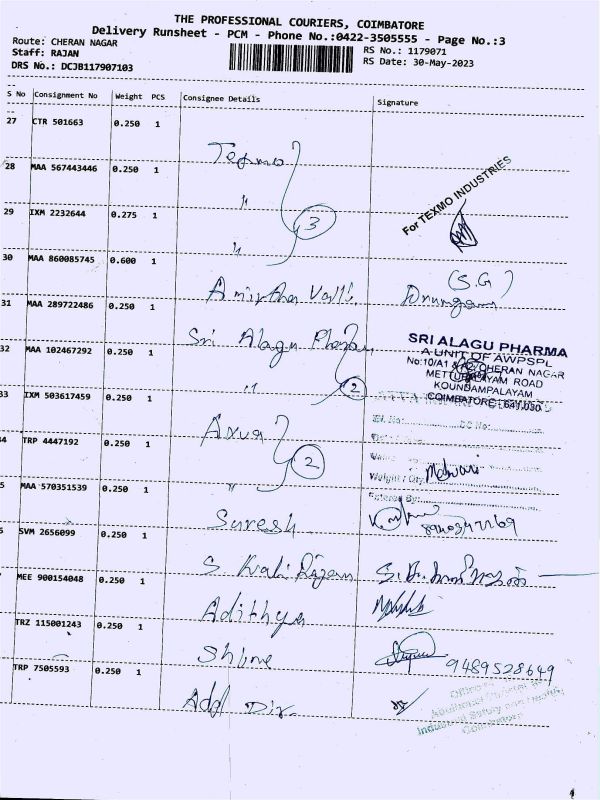 THE PROFESSIONAL COURIERS, COIMBATORE
Delivery Runsheet - PCM - Phone No.:0422-3505555 - Page No.:3
Route: CHERAN NAGAR
Staff: RAJAN
DRS No.: DCJB117907103
RS No.: 1179071
RS Date: 30-May-2023
S No Consignment No Weight PCS Consignee Details Signature
27 CTR 501663 0.250 1
Texmo
28 MAA 567443446 0.250 1
"
For TEXMO INDUSTRIES
29 IXM 2232644 0.275 1
3
"
30 MAA 860085745 0.600 1
Amirtha Valli
(S.G)
31 MAA 289722486 0.250 1
Sri Alagu Pharma
SRI ALAGU PHARMA
A UNIT OF AWPSPL
No:10/A1 & A2, CHERAN NAGAR
METTUPALAYAM ROAD
KOUNDAMPALAYAM
COIMBATORE - 641 030
32 MAA 102467292 0.250 1
" 2
33 IXM 503617459 0.250 1
Arua
4 TRP 4447192 0.250 1
2
"
Weight / Qty.
Entered By:
5 MAA 570351539 0.250 1
Suresh
SVM 2656099 0.250 1
S
MEE 900154048 0.250 1
Adithya
TRZ 115001243 0.250 1
Shine
9489528649
TRP 7505593 0.250 1
Add Dir.